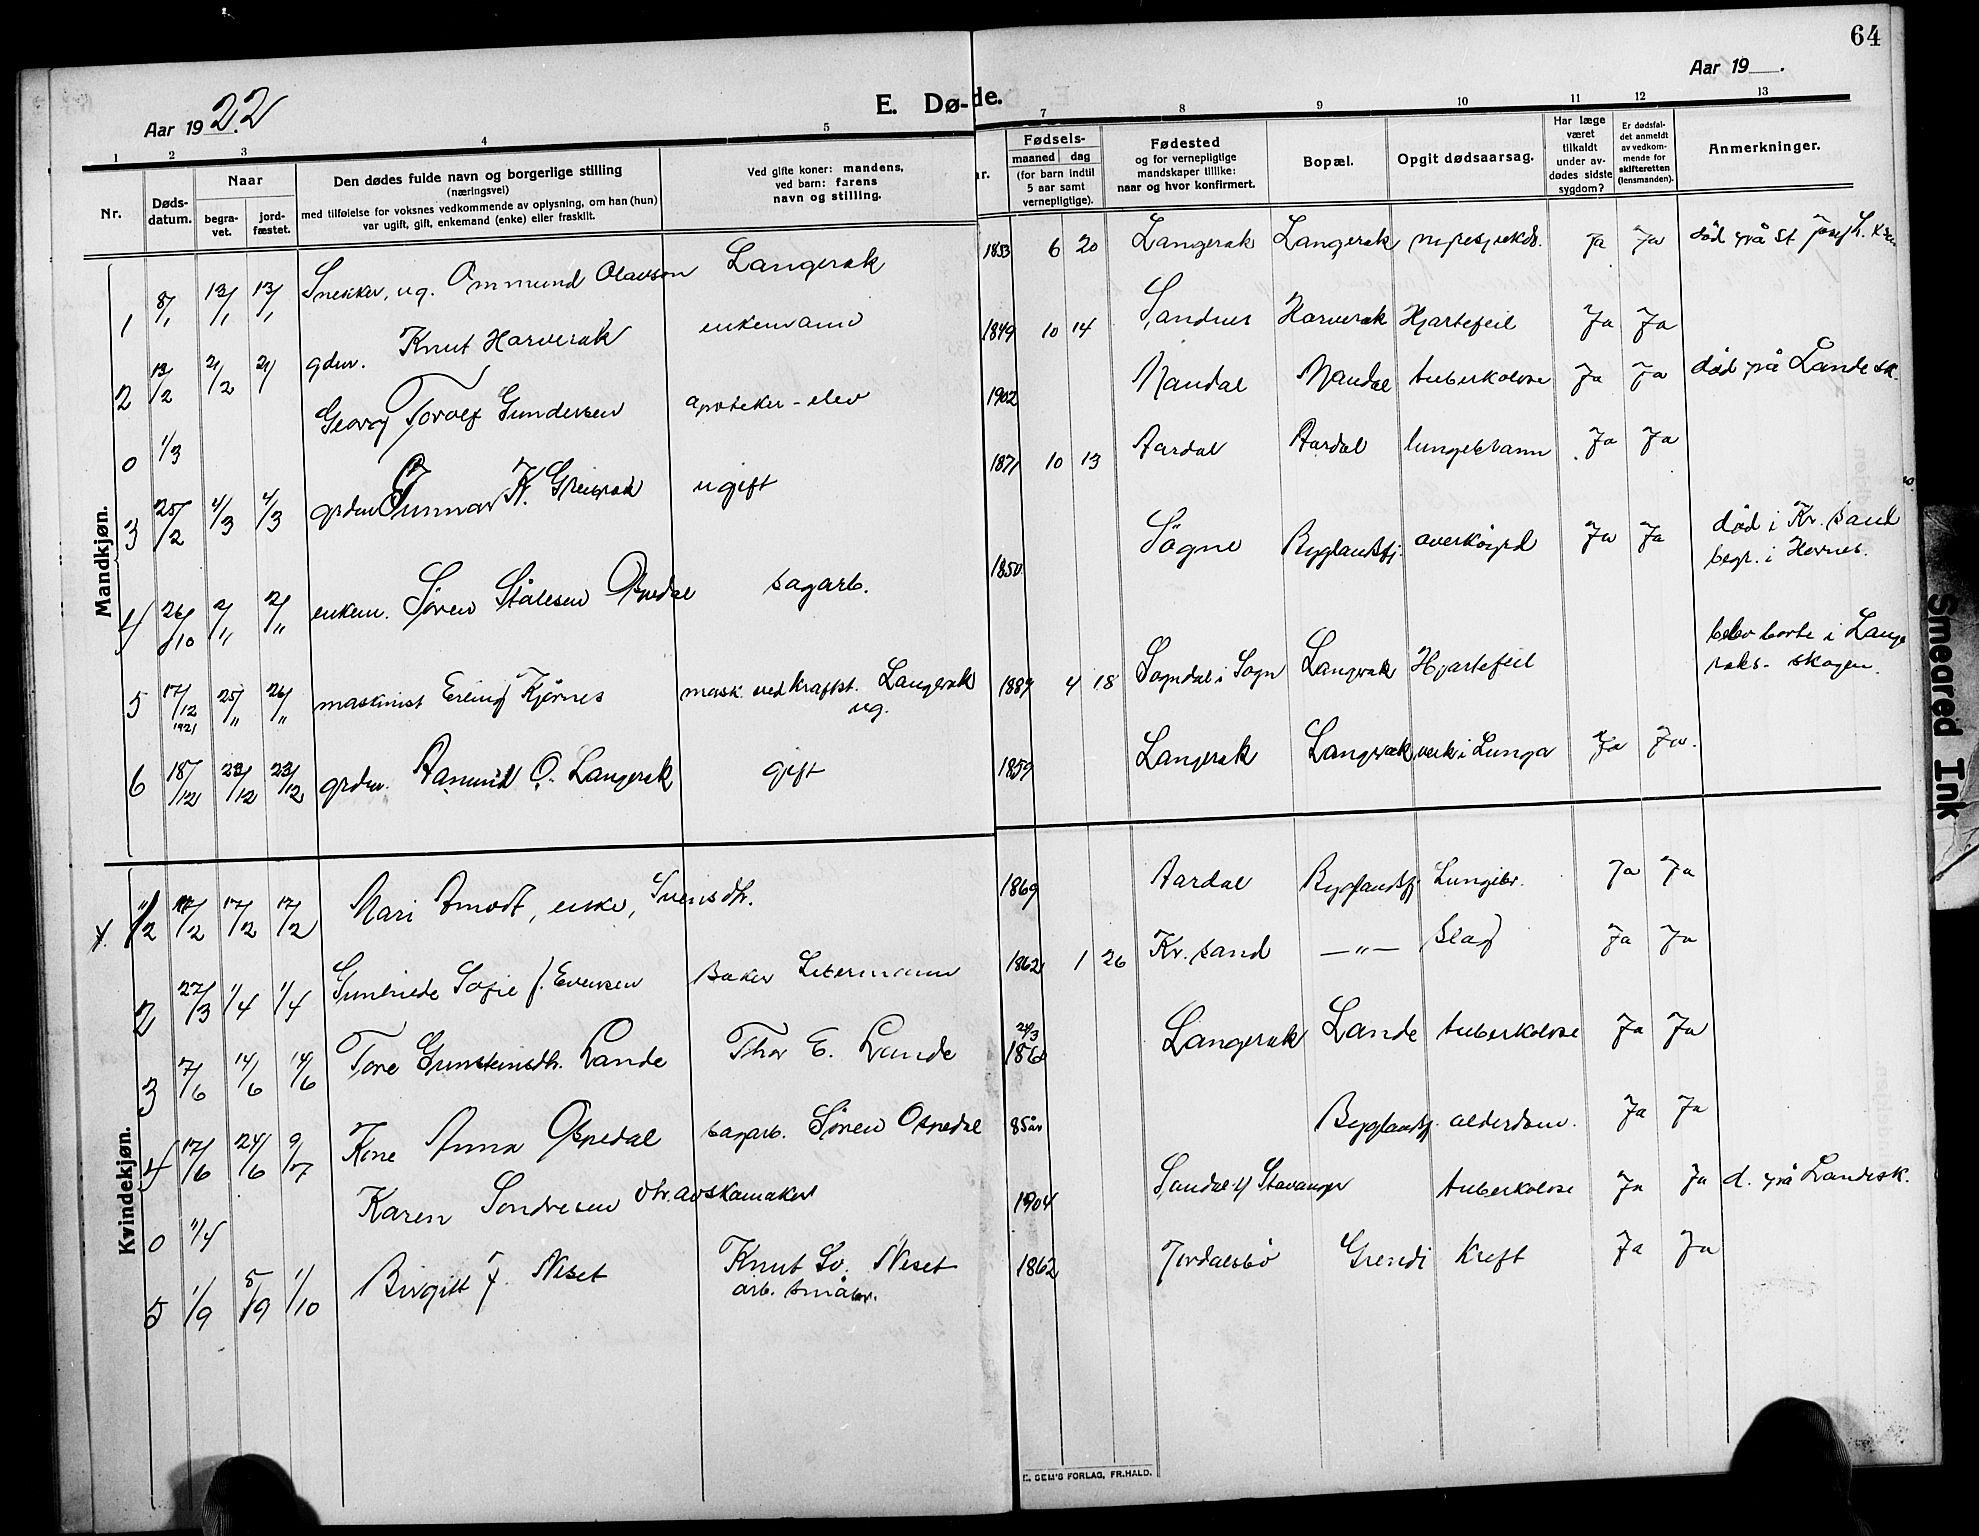 64
Aar 1922
E. Dø-de.
Aar 19__.
1 2 3 4 5 7 8 9 10 11 12 13
Nr.
Døds-datum.
Naar
begra-vet.
jord-fæstet.
Den dødes fulde navn og borgerlige stilling
(næringsvei)
med tilføielse for voksnes vedkommende av oplysning, om han (hun)
var ugift, gift, enkemand (enke) eller fraskilt.
Ved gifte koner: mandens,
ved barn: farens
navn og stilling.
Fødsels-
maaned dag
(for barn indtil
5 aar samt
vernepligtige).
Fødested
og for vernepligtige
mandskaper tillike:
naar og hvor konfirmert.
Bopæl.
Opgit dødsaarsag.
Har læge
været
tilkaldt
under av-
dødes sidste
sygdom?
Er dødsfal-
det anmeldt
av vedkom-
mende for
skifteretten
(lensmanden).
Anmerkninger.
Mandkjøn.
1 8/1 13/1 13/1 Snekker, ug. Ommund Olavson Langerak 1853 6 20 Langerak Langerak Ja Ja død på St Joseph.
2 13/2 21/2 21/ gdm. Knut Harverak enkemand 1849 10 14 Sandnes Harverak Hjartefeil Ja Ja
0 1/3 Georg Torolf Gundersen apoteker-elev 1902 Mandal Mandal tuberkolose Ja Ja død på Landesk.
3 25/2 4/3 4/3 grdm Gunnar K. ugift 1871 10 13 Aardal Aardal lungebrann Ja Ja
4 26/10 2/11 2/11 enkem. Søren Stålesen Ospedal sagarb. 1850 Søgne Byglandsfj. overkøyrd Ja Ja død i Kr.sand
begr. i Hornes.
5 17/12 1921 25/" 26/" maskinist Erling Kjørnes mask ved Kraftst. Langerak
ug. 1889 4 18 Sogndal i Sogn Langerak Hjartefeil blev borte i Lange
raks-skogen.
6 18/12 23/12 23/12 grdm. Aanund O. Langerak gift 1859 Langerak Langerak verk i Lunga Ja Ja.
Kvindekjøn.
1 17/2 17/2 Mari Amodt, enke, Svensdtr. 1869 Aardal Byglandsfj Lungebr. Ja Ja
2 27/3 1/4 1/4 Sofie f. Evensen Baker 1862 1 26 Kr.sand —"— Slag Ja Ja
3 7/6 14/6 14/6 Tone Gunsteinsdtr. Lande Thor E. Lande 24/3 1860 Langerak Lande tuberkolose Ja Ja
4 17/6 24/6 9/7 Kone Anna Ospedal sagarb. Søren Ospedal 85 år Byglandsfj. alderdom. Ja Ja
0 11/4 Karen Sondresen dtr. av skomaker 1904 Stavanger tuberkolose Ja Ja d. på Landesk.
5 1/9 5/9 1/10 Birgitt f. Neset Knut Sv. Neset
arb. småbr. 1862 Jordalsbø Grendi Kreft Ja Ja
E. SEM'S FORLAG, FR.HALD.
Smeared Ink